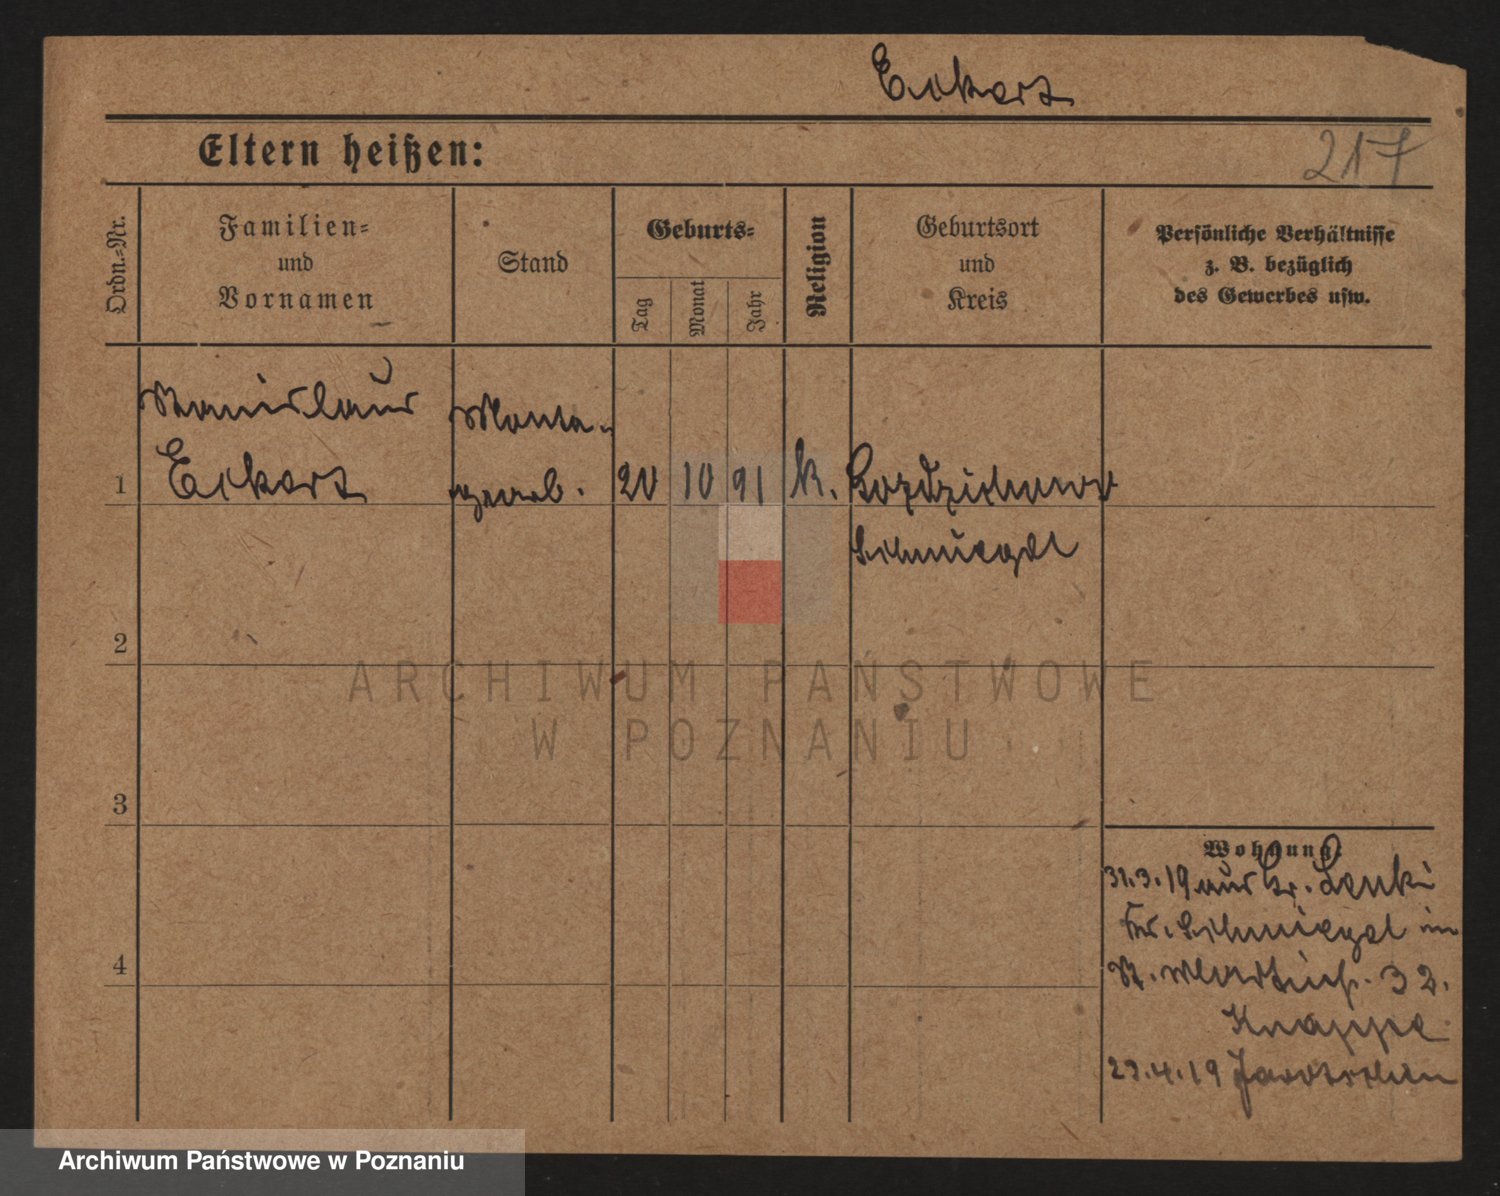 Eckert
Eltern heißen:
217
Ordn.=Nr.
Familien=
und
Vornamen
Stand
Geburts=
Tag
Monat
Jahr
Religion
Geburtsort
und
Kreis
Persönliche Verhältnisse
z. B. bezüglich
des Gewerbes usw.
Stanislaus
Eckert
1
20 10 91 k.
Schmiegel
2
3
4
Wohnung.
31.3.19 aus Gr. Lenki
Kr. Schmiegel in
St. Martinstr. 32.
Knappe
23.4.19 Jarotschin
ARCHIWUM PAŃSTWOWE
W POZNANIU
Archiwum Państwowe w Poznaniu